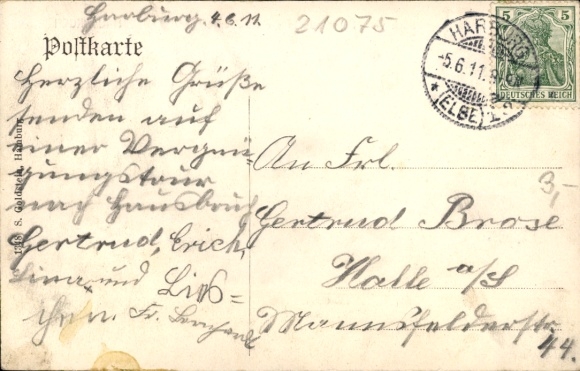 Harburg, 4.6.11.
21075
Postkarte
Herzliche Grüße
senden auf
einer Vergnü-
gungstour
nach Hausbruch
Gertrud, Erich,
Lina und Lies-
chen. Fr.
An Frl.
Gertrud Brose
Halle a/S
Mannsfelderstr.
44.
3,-
HARBURG
-5.6.11.
* (ELBE) 1
5 5
DEUTSCHES REICH
S. Goldstein, Hamburg